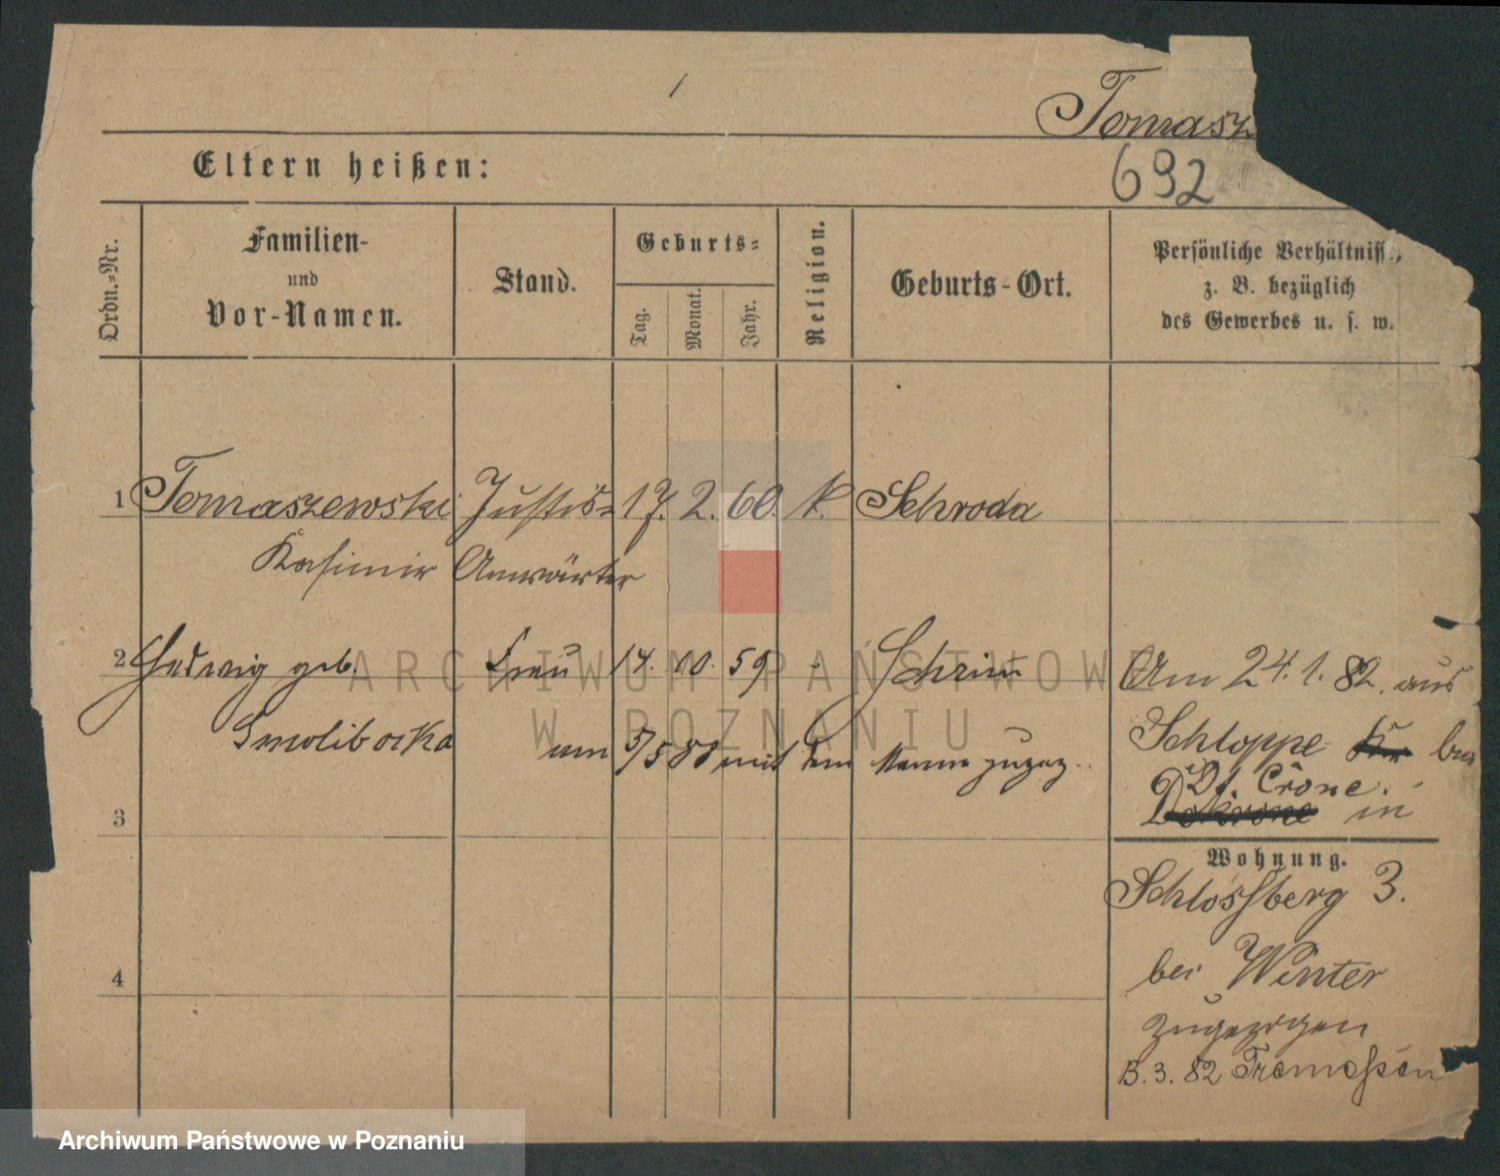 Tomasz
Eltern heißen:
692
Ordn.-Nr.
Familien-
und
Vor-Namen.
Stand.
Geburts-
Tag.
Monat.
Jahr.
Religion.
Geburts-Ort.
Persönliche Verhältnisse,
z. B. bezüglich
des Gewerbes u. s. w.
1 Tomaszewski Justiz- 17. 2. 60. k. Schroda
Kasimir Anwärter
2 Hedwig geb. Frau 14. 10. 59 Schrim
Smolibocka am 5/5 88 mit dem Manne zugez.
Am 24.1.82. aus
Schloppe
Dt. Crone.
in
3
Wohnung.
Schlossberg 3.
bei Winter
zugezogen
4
B. 3. 82 Tremessen
ARCHIWUM PAŃSTWOWE
W POZNANIU
Archiwum Państwowe w Poznaniu